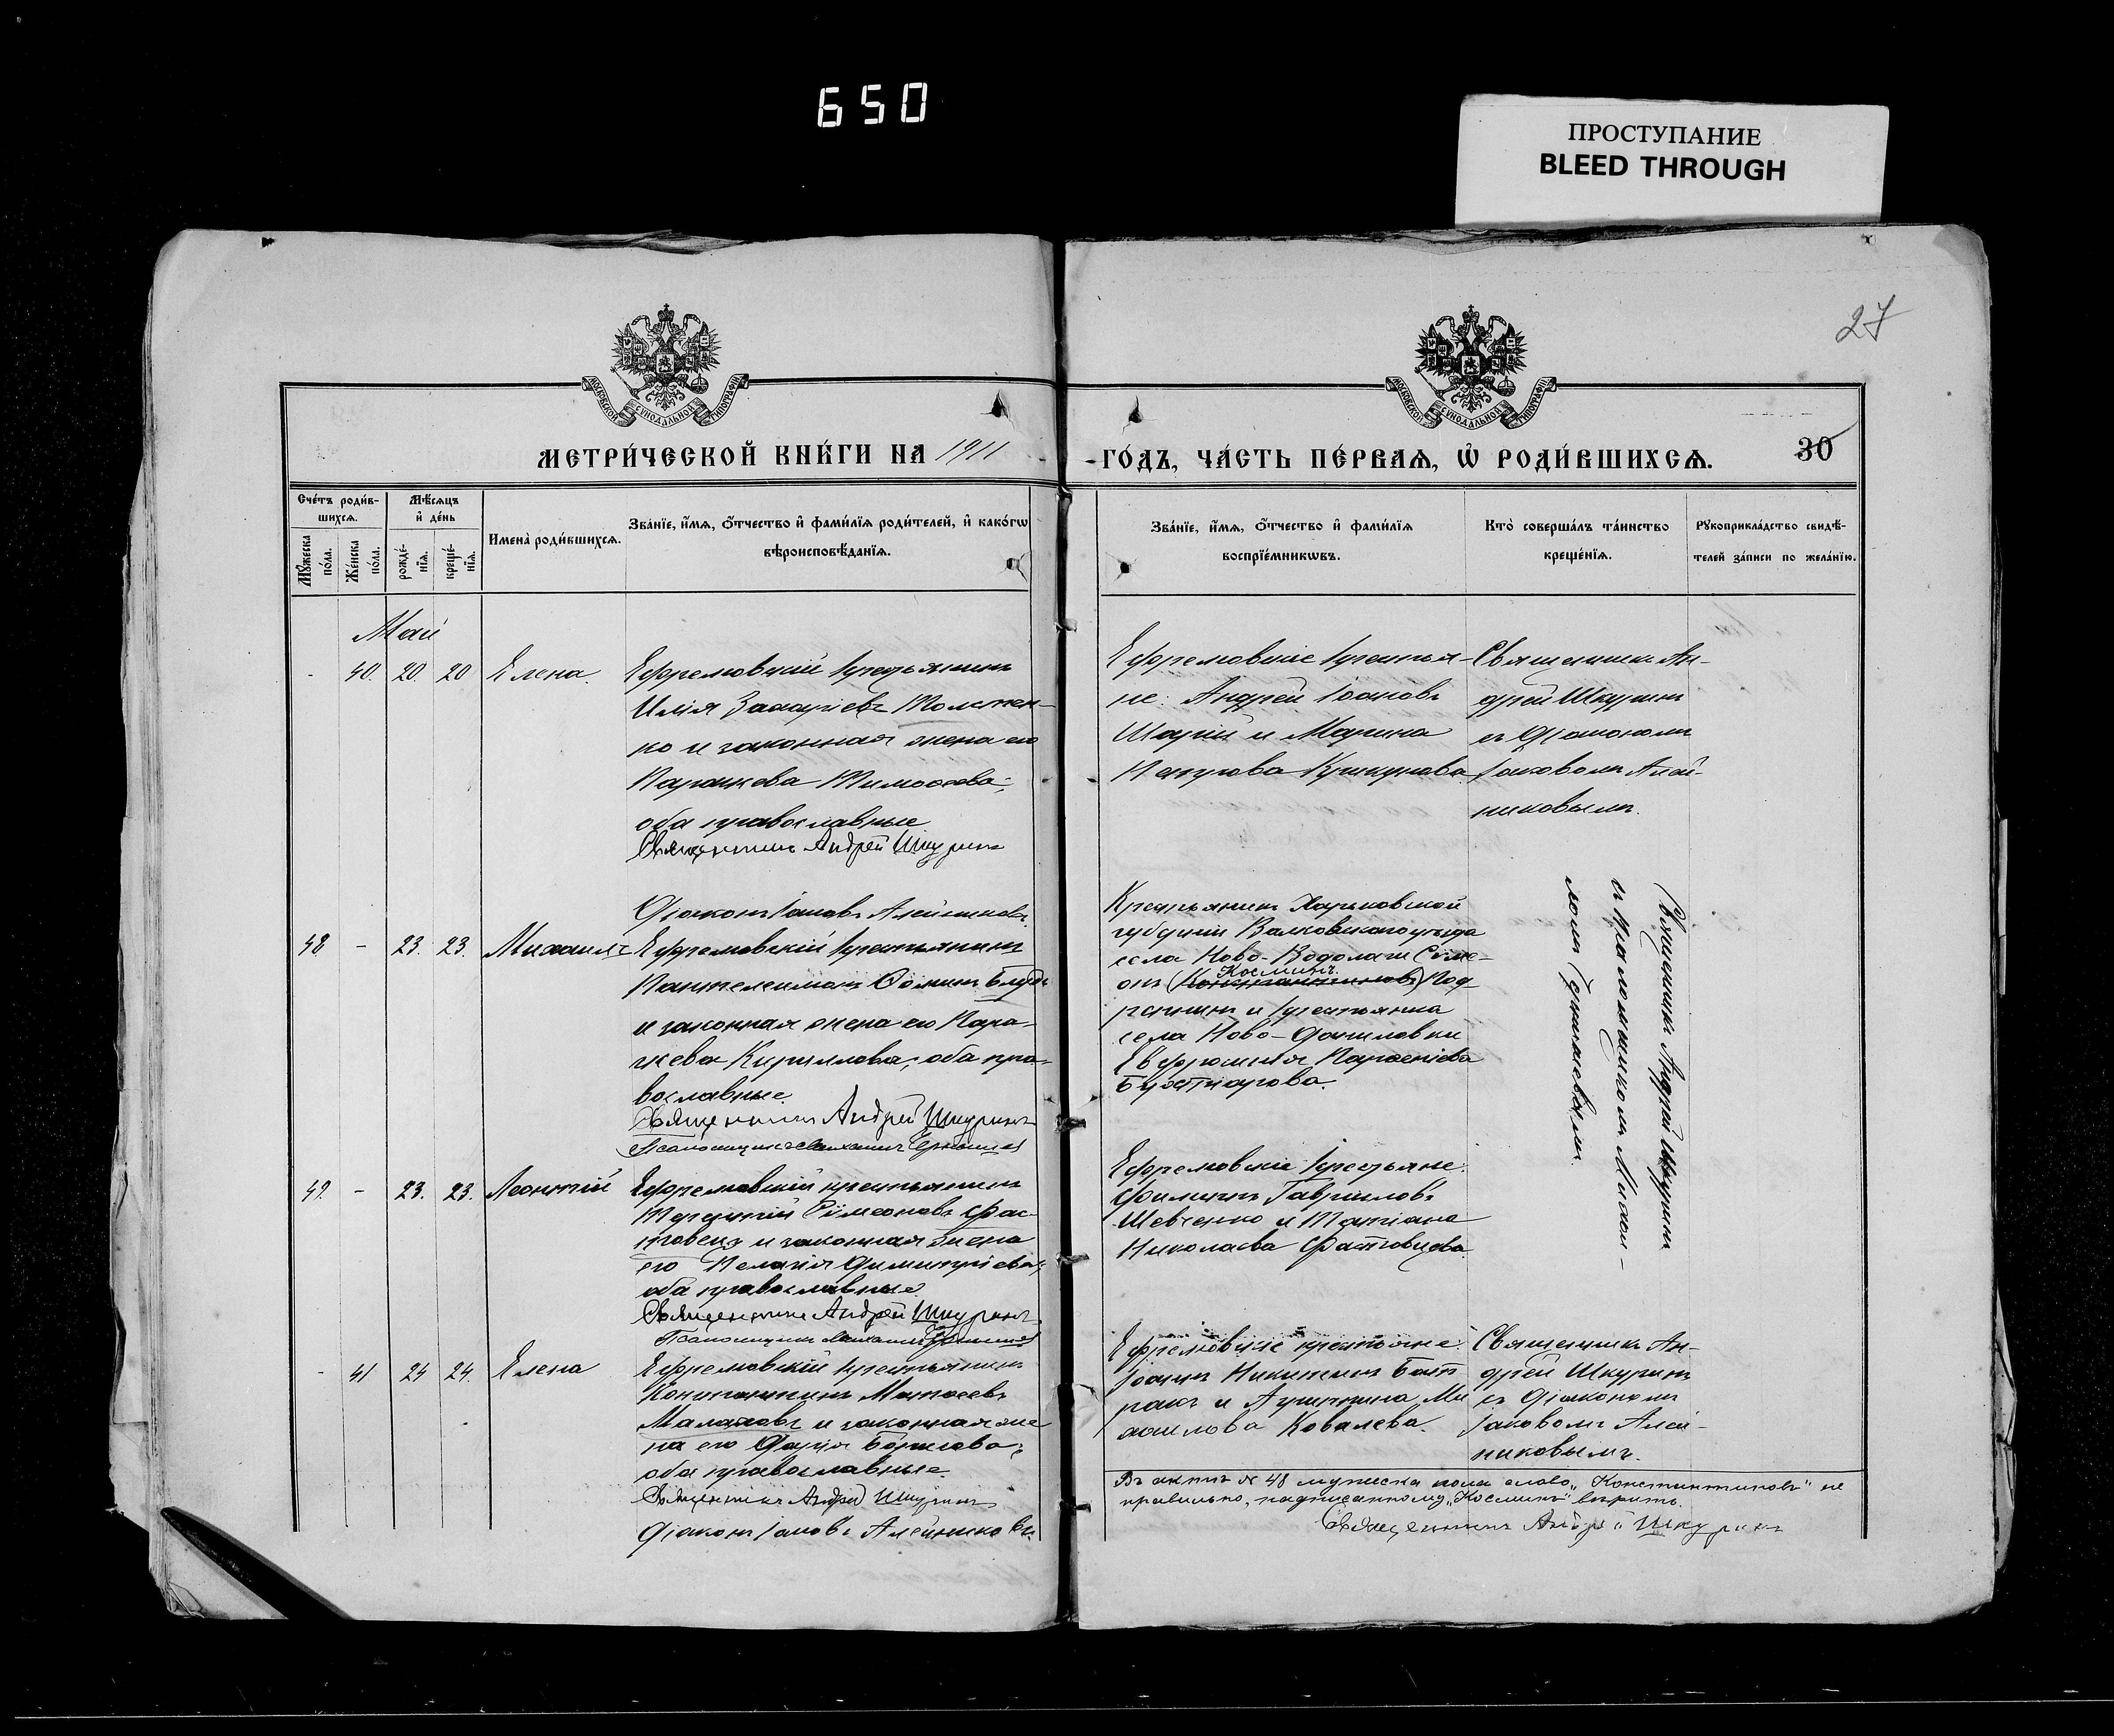 650
ПРОСТУПАНИЕ
BLEED THROUGH
27
МОСКОВСКОЙ СѴНОДАЛЬНОЙ ТИПОГРАФІИ
МОСКОВСКОЙ СѴНОДАЛЬНОЙ ТИПОГРАФІИ
МЕТРИ́ЧЕСКОЙ КНИ́ГИ НА 1911
ГО́ДЪ, ЧА́СТЬ ПЕ́РВАѦ, Ѡ҆ РОДИ́ВШИХСѦ.
30
Сче́тъ роди́в-
шихсѧ.
Мѣ́сѧцъ
и҆ де́нь
Мꙋ́жеска
по́ла.
Же́нска
по́ла.
рожде́-
нїѧ.
креще́-
нїѧ.
И҆мена̀ роди́вшихсѧ.
Зва́нїе, и҆́мѧ, ѻ҆́тчество и҆ фами́лїѧ роди́телей, и҆ како́гѡ
вѣроисповѣ́данїѧ.
Зва́нїе, и҆́мѧ, ѻ҆́тчество и҆ фами́лїѧ
воспрїе́мникѡвъ.
Кто̀ соверша́лъ та́инство
креще́нїѧ.
Рꙋкоприкла́дство свидѣ́-
телей за́писи по жела́нїю.
Май
- 40. 20. 20 Елена.
Ефремовскій крестьянинъ
Илія Захаріевъ Толстен-
ко и законная жена его
Параскева Тимоѳеева;
оба православные
Священникъ Андрей Шкуринъ
Діаконъ Іаковъ Алейниковъ
Ефремовскіе крестья-
не: Андрей Іоановъ
Шарій и Марина
Петрова
Священникъ Ан-
дрей Шкуринъ
съ Діакономъ
Іаковомъ Алей-
никовымъ.
48 - 23. 23. Михаилъ
Ефремовскій крестьянинъ
Пантелеимонъ Ѳоминъ
и законная жена его Пара-
скева Кириллова; оба пра-
вославные.
Священникъ Андрей Шкуринъ
Псаломщикъ Михаилъ
Крестьянинъ Харьковской
губерніи Валковскаго уѣзда
села Ново-Водолаги Сѵме-
Косминъ
онъ (Константиновъ) Под
и крестьянка
села Ново-Даниловки
Евфросинія Парѳеніева
Священникъ Андрей Шкуринъ
съ Псаломщикомъ Михаи-
ломъ
49. - 23. 23. Леонтій
Ефремовскій крестьянинъ
Терентій Сѵмеоновъ Фас-
товецъ и законная жена
его Пелагія Димитріева;
оба православные
Священникъ Андрей Шкуринъ
Псаломщикъ Михаилъ
Ефремовскіе крестьяне:
Филиппъ Гавриловъ
Шевченко и Татіана
Николаева Фастовцова.
- 41 24 24. Елена
Ефремовскій крестьянинъ
Константинъ Матѳеевъ
Малаховъ и законная же
на его Дарія Борисова;
оба православные.
Священникъ Андрей Шкуринъ
Діаконъ Іаковъ Алейниковъ.
Ефремовскіе крестьяне:
Іоаннъ Никитинъ Бат
ракъ и Агриппина Ми
хаилова Ковалева.
Священникъ Ан-
дрей Шкуринъ
съ Діакономъ
Іаковомъ Алей-
никовымъ.
Въ актѣ № 48 мужеска пола слово „Константиновъ" не
правильно, надписанному „Косминъ" вѣрить.
Священникъ Андрей Шкуринъ